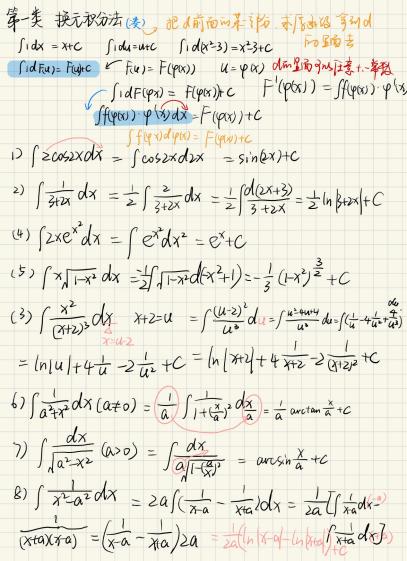 第一类 换元积分法(凑) 把d前面的某部分,求原函数,拿到d的里面去
∫1dx = x+C ∫1du=u+C ∫1d(x²-3)=x²-3+C
∫1dF(u)=F(u)+C F(u)=F(φ(x)) u=φ(x) d的里面可以任意+,-常数
∫1dF(φ(x)) = F(φ(x))+C F'(φ(x))=∫f(φ(x))·φ'(x)
∫f(φ(x))·φ'(x)dx = F(φ(x))+C
∫f(φ(x))dφ(x) = F(φ(x))+C
1) ∫2cos2xdx = ∫cos2xd2x = sin(2x)+C
2) ∫1/(3+2x) dx = 1/2 ∫2/(3+2x) dx = 1/2 ∫d(2x+3)/(3+2x) = 1/2 ln|3+2x|+C
(4) ∫2xe^{x²}dx = ∫e^{x²}dx² = e^{x²}+C
(5) ∫x√(1-x²) dx = -1/2 ∫√(1-x²) d(-x²+1) = -1/3 (1-x²)^{3/2} + C
(3) ∫x²/(x+2)³ dx x+2=u = ∫(u-2)²/u³ du = ∫(u²-4u+4)/u³ du = ∫(1/u - 4 1/u² + 4/u³) du
x=u-2
= ln|u|+4 1/u - 2 1/u² + C = ln|x+2|+4 1/(x+2) - 2 1/(x+2)² + C
6) ∫1/(a²+x²) dx (a≠0) = 1/a ∫1/(1+(x/a)²) d x/a = 1/a arctan x/a + C
7) ∫dx/√(a²-x²) (a>0) = ∫dx/(a√(1-(x/a)²)) = arcsin x/a + C
8) ∫1/(x²-a²) dx = 2a∫(1/(x-a) - 1/(x+a))dx = 1/2a [∫1/(x-a) dx(-a) - ∫1/(x+a) dx(+a)]
1/((x+a)(x-a)) = (1/(x-a) - 1/(x+a))2a = 1/2a (ln|x-a|-ln|x+a|)+C